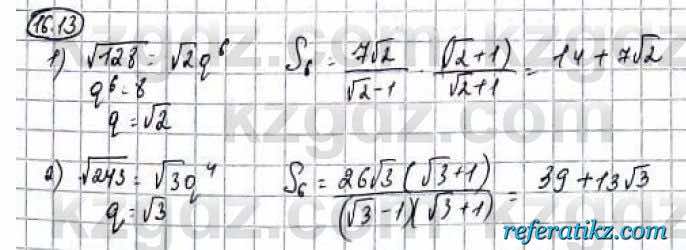 16.13
1) √128 = √2q⁶ S₆ = 7√2/(√2-1) · (√2+1)/(√2+1) = 14 + 7√2
q⁶ = 8
q = √2
2) √243 = √3q⁴ S₆ = 26√3(√3+1)/((√3-1)(√3+1)) = 39 + 13√3
q = √3
kzgdz.com
referatikz.com